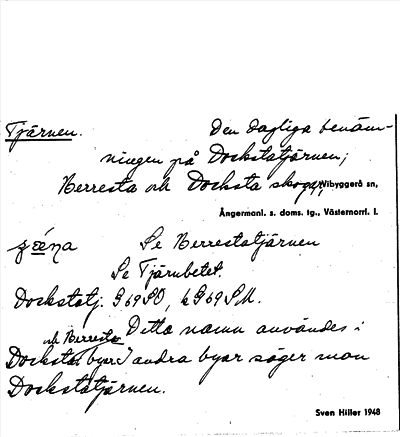 Tjärnen. Den dagliga benäm-
ningen på Dockstatjärnen;
Berresta och Docksta skogar, Vibyggerå sn,
Ångermanl. s. doms. tg., Västernorrl. l.
Se Berrestatjärnen
Se Tjärnbetet.
Dockstatj. G69SO, LG69SM.
och Berresta Detta namn användes i
Docksta byar. I andra byar säger man
Dockstatjärnen.
Sven Hiller 1948